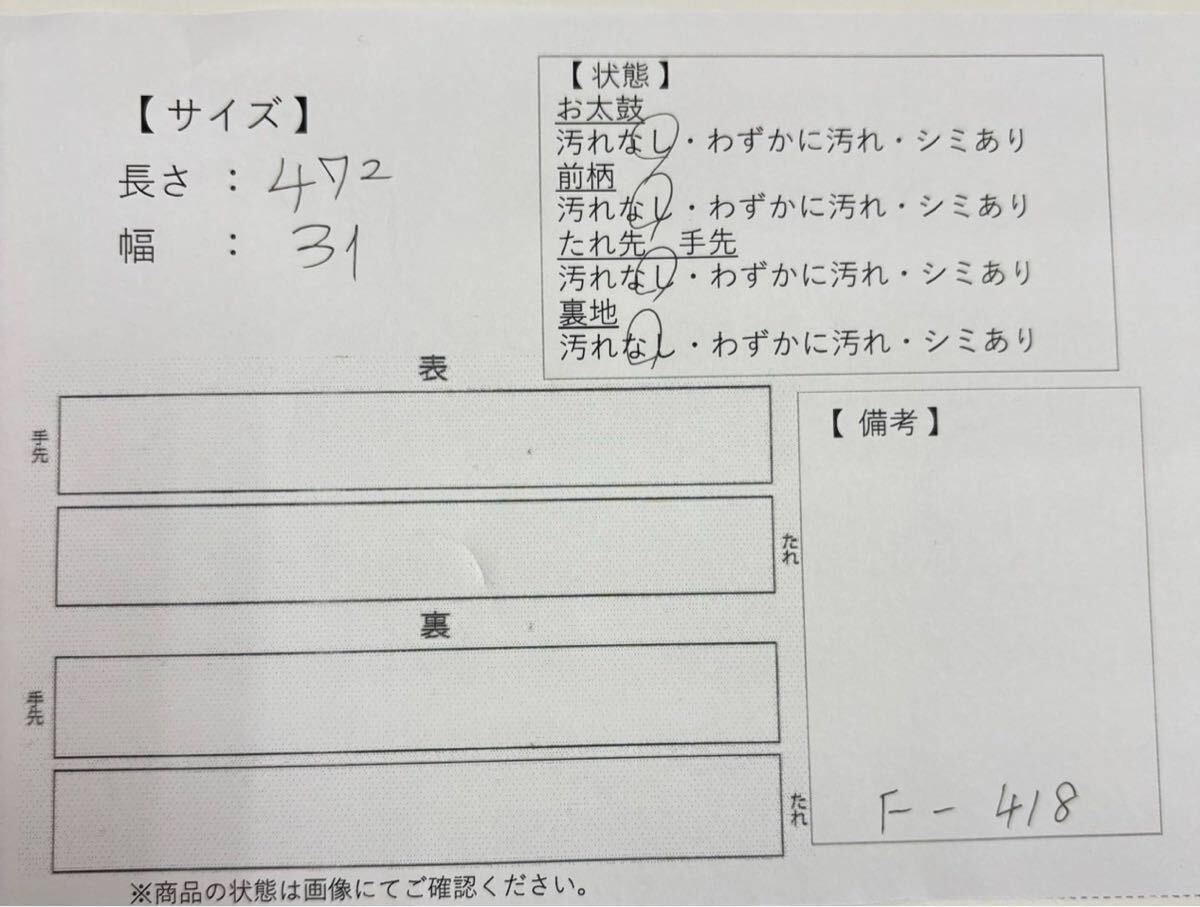 【サイズ】
長さ : 472
幅 : 31
【状態】
お太鼓
汚れなし・わずかに汚れ・シミあり
前柄
汚れなし・わずかに汚れ・シミあり
たれ先 手先
汚れなし・わずかに汚れ・シミあり
裏地
汚れなし・わずかに汚れ・シミあり
表
手先
たれ
裏
手先
たれ
【備考】
F-418
※商品の状態は画像にてご確認ください。